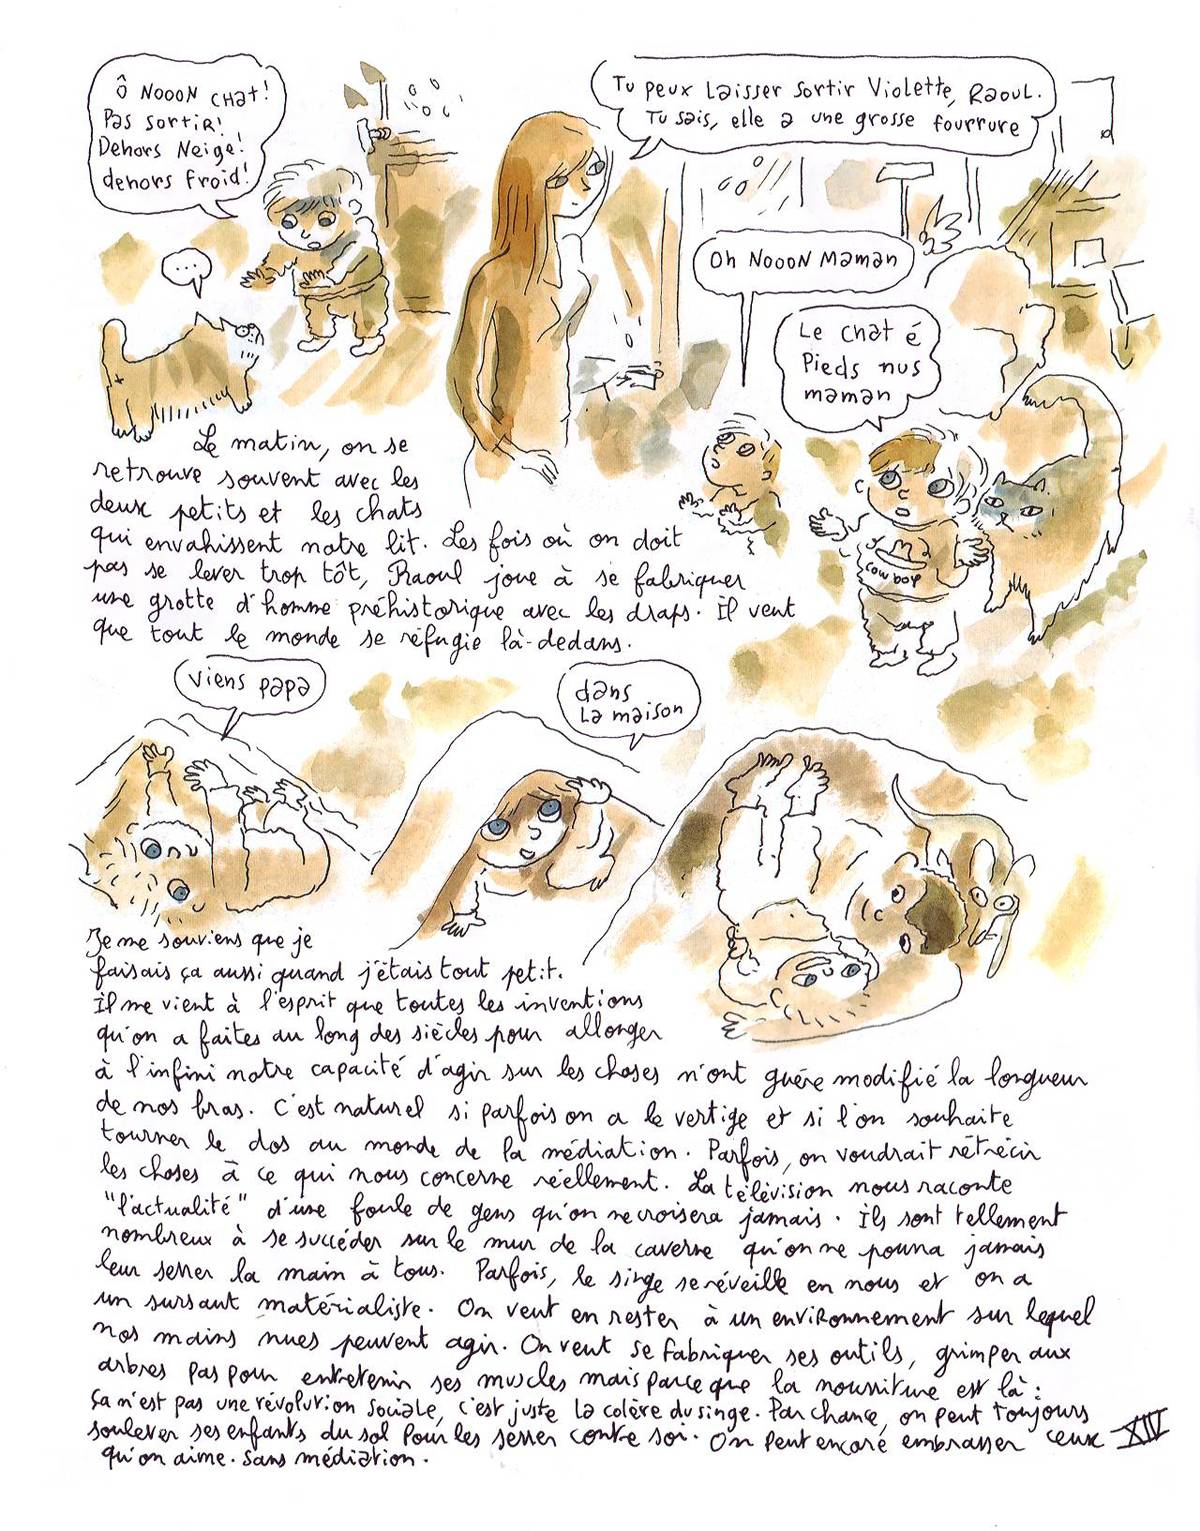 Ô NOOON CHAT!
Pas SORTIR!
Dehors Neige!
dehors froid!
Tu peux Laisser sortir Violette, Raoul.
Tu sais, elle a une grosse fourrure
...
Oh NOOON Maman
Le chat é
Pieds nus
maman
COWBOY
Le matin, on se
retrouve souvent avec les
deux petits et les chats
qui envahissent notre lit. Les fois où on doit
pas se lever trop tôt, Raoul joue à se fabriquer
une grotte d'homme préhistorique avec les draps. Il veut
que tout le monde se réfugie là-dedans.
viens papa
dans
La maison
Je me souviens que je
faisais ça aussi quand j'étais tout petit.
Il me vient à l'esprit que toutes les inventions
qu'on a faites au long des siècles pour allonger
à l'infini notre capacité d'agir sur les choses n'ont guère modifié la longueur
de nos bras. C'est naturel si parfois on a le vertige et si l'on souhaite
tourner le dos au monde de la médiation. Parfois, on voudrait rétrécir
les choses à ce qui nous concerne réellement. La télévision nous raconte
"l'actualité" d'une foule de gens qu'on ne croisera jamais. Ils sont tellement
nombreux à se succéder sur le mur de la caverne qu'on ne pourra jamais
leur serrer la main à tous. Parfois, le singe se réveille en nous et on a
un sursaut matérialiste. On veut en rester à un environnement sur lequel
nos mains nues peuvent agir. On veut se fabriquer ses outils, grimper aux
arbres pas pour entretenir ses muscles mais parce que la nourriture est là:
ça n'est pas une révolution sociale, c'est juste la colère du singe. Par chance, on peut toujours
soulever ses enfants du sol pour les serrer contre soi. On peut encore embrasser ceux
qu'on aime. Sans médiation.
XIV